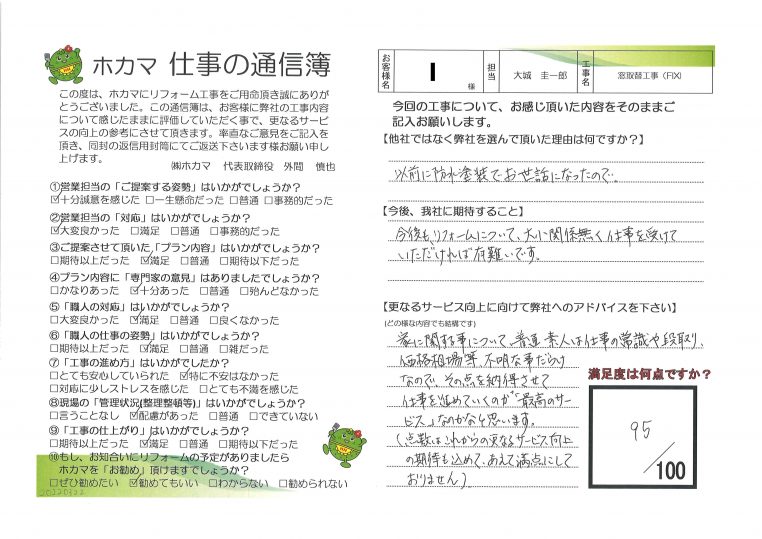 ホカマ 仕事の通信簿
この度は、ホカマにリフォーム工事をご用命頂き誠にありが
とうございました。この通信簿は、お客様に弊社の工事内容
について感じたままに評価していただく事で、更なるサービ
スの向上の参考にさせて頂きます。率直なご意見をご記入を
頂き、同封の返信用封筒にてご返送下さいます様お願い申し
上げます。
㈱ホカマ 代表取締役 外間 慎也
①営業担当の「ご提案する姿勢」はいかがでしょうか?
☑十分誠意を感じた □一生懸命だった □普通 □事務的だった
②営業担当の「対応」はいかがでしょうか?
☑大変良かった □満足 □普通 □事務的だった
③ご提案させて頂いた「プラン内容」はいかがでしょうか?
□期待以上だった ☑満足 □普通 □期待以下だった
④プラン内容に「専門家の意見」はありましたでしょうか?
□かなりあった ☑十分あった □普通 □殆んどなかった
⑤「職人の対応」はいかがでしょうか?
□大変良かった ☑満足 □普通 □良くなかった
⑥「職人の仕事の姿勢」はいかがでしょうか?
□期待以上だった ☑満足 □普通 □雑だった
⑦「工事の進め方」はいかがでしたか?
□とても安心していられた ☑特に不安はなかった
□対応に少しストレスを感じた □とても不満を感じた
⑧現場の「管理状況(整理整頓等)」はいかがでしょうか?
□言うことなし ☑配慮があった □普通 □できていない
⑨「工事の仕上がり」はいかがでしょうか?
□期待以上だった ☑満足 □普通 □期待以下だった
⑩もし、お知合いにリフォームの予定がありましたら
ホカマを「お勧め」頂けますでしょうか?
□ぜひ勧めたい ☑勧めてもいい □わからない □勧められない
お客様名 I 様 担当 大城 圭一郎 工事名 窓取替工事(FIX)
今回の工事について、お感じ頂いた内容をそのままご
記入お願いします。
【他社ではなく弊社を選んで頂いた理由は何ですか?】
以前に防水塗装でお世話になったので。
【今後、我社に期待すること】
今後も、リフォームについて、大小関係無く仕事を受けて
いただければ有難いです。
【更なるサービス向上に向けて弊社へのアドバイスを下さい】
(どの様な内容でも結構です)
家に関する事について、普通素人は仕事の常識や段取り、
価格相場等、不明な事だらけ
なので、その点を納得させて
仕事を進めていくのが「最高のサー
ビス」なのかなと思います。
(点数はこれからの更なるサービス向上
の期待も込めて、あえて満点にして
おりません)
満足度は何点ですか?
95
/100